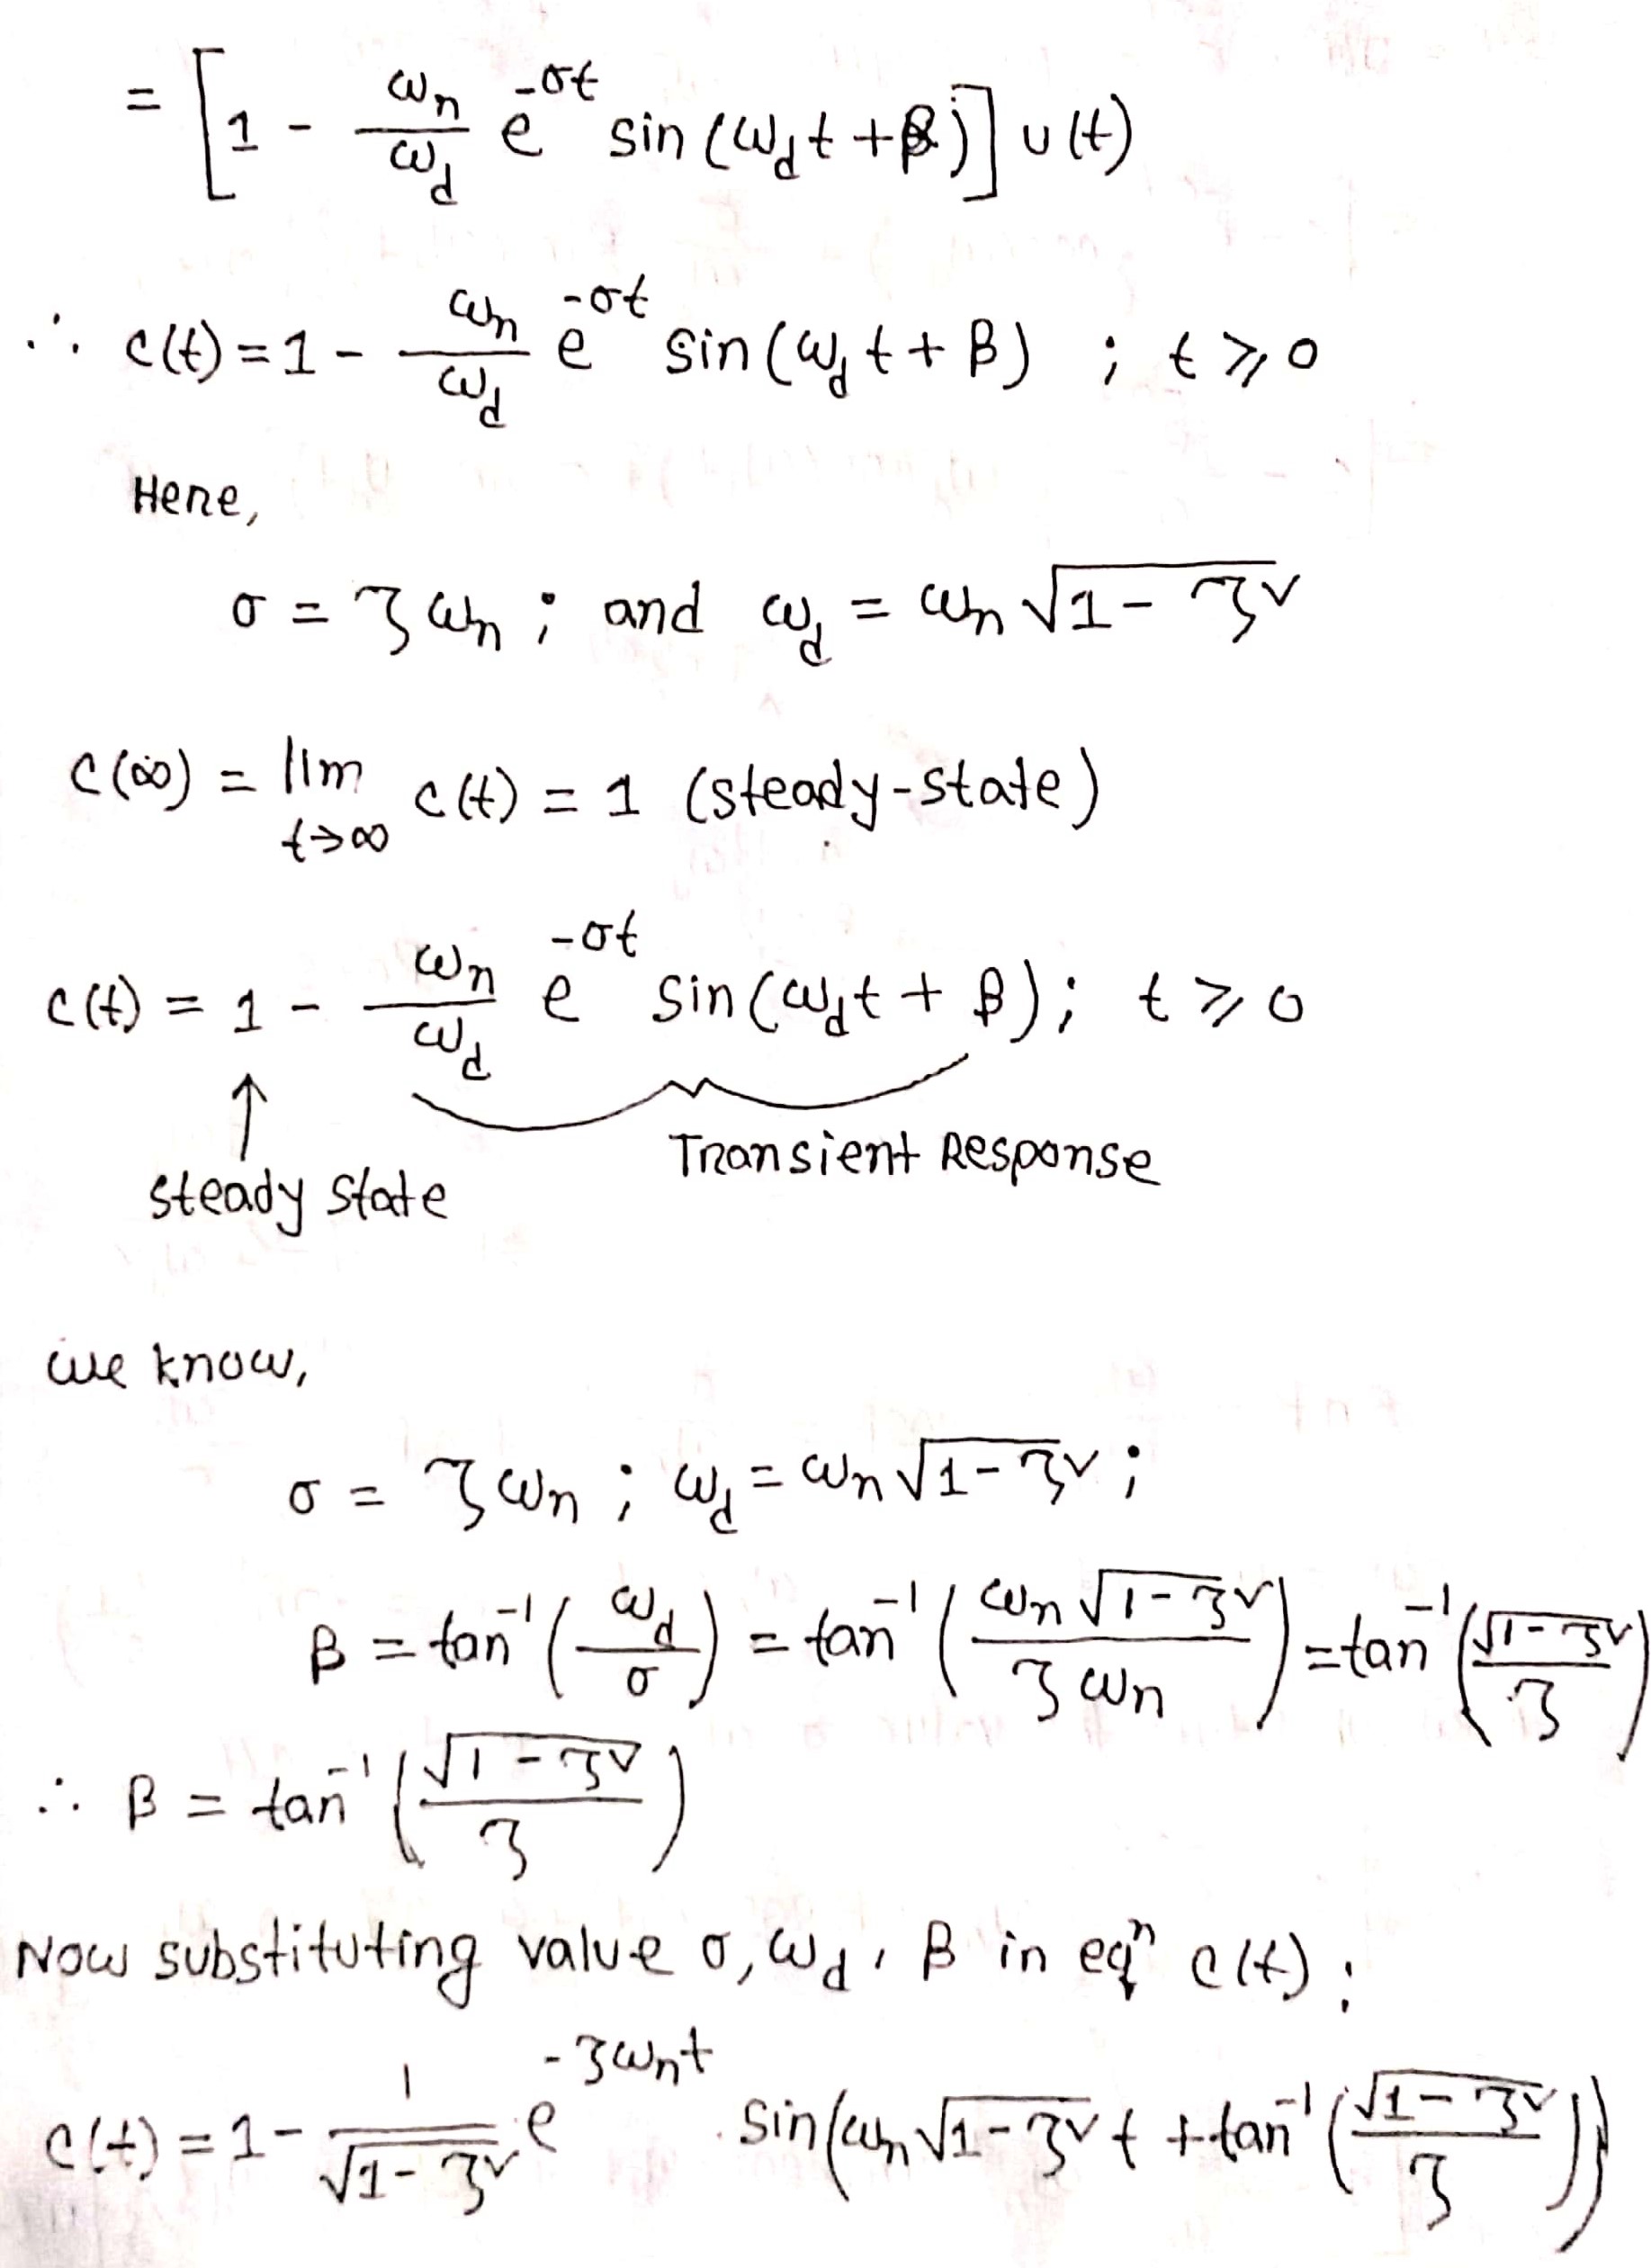 = [1 - ωn/ωd e^-σt sin(ωdt + β)] u(t)
∴ c(t) = 1 - ωn/ωd e^-σt sin(ωdt + β) ; t ⩾ 0
Here,
σ = ζωn ; and ωd = ωn √(1 - ζ²)
c(∞) = lim t→∞ c(t) = 1 (steady-state)
c(t) = 1 - ωn/ωd e^-σt sin(ωdt + β) ; t ⩾ 0
↑
Transient Response
steady state
we know,
σ = ζωn ; ωd = ωn √(1-ζ²) ;
β = tan⁻¹(ωd/σ) = tan⁻¹(ωn √(1-ζ²)/ζωn) = tan⁻¹(√(1-ζ²)/ζ)
∴ β = tan⁻¹(√(1-ζ²)/ζ)
Now substituting value σ, ωd, β in eqⁿ c(t) ;
c(t) = 1 - 1/√(1-ζ²) . e^-ζωnt . sin(ωn √(1-ζ²) t + tan⁻¹(√(1-ζ²)/ζ))